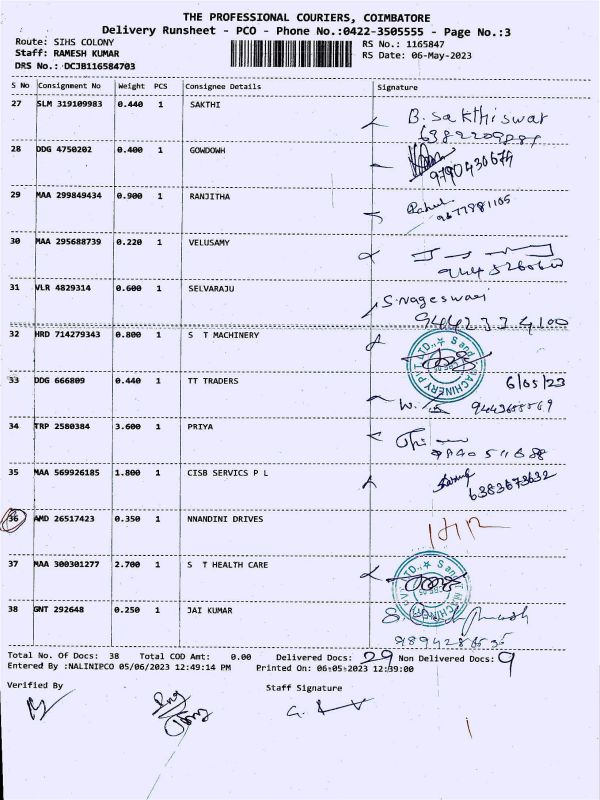 THE PROFESSIONAL COURIERS, COIMBATORE
Delivery Runsheet - PCO - Phone No.:0422-3505555 - Page No.:3
Route: SIHS COLONY RS No.: 1165847
Staff: RAMESH KUMAR RS Date: 06-May-2023
DRS No.: DCJB116584703
S No Consignment No Weight PCS Consignee Details Signature
27 SLM 319109983 0.440 1 SAKTHI B. Sakthiswar
28 DDG 4750202 0.400 1 GOWDOWH
9790430674
29 MAA 299849434 0.900 1 RANJITHA Rahul
9677981105
30 MAA 295688739 0.220 1 VELUSAMY
31 VLR 4829314 0.600 1 SELVARAJU S. Nageswari
9442334100
32 HRD 714279343 0.800 1 S T MACHINERY
33 DDG 666809 0.440 1 TT TRADERS 6/05/23
34 TRP 2580384 3.600 1 PRIYA
35 MAA 569926185 1.800 1 CISB SERVICS P L
6383673632
36 AMD 26517423 0.350 1 NNANDINI DRIVES
37 MAA 300301277 2.700 1 S T HEALTH CARE
38 GNT 292648 0.250 1 JAI KUMAR
Total No. Of Docs: 38 Total COD Amt: 0.00 Delivered Docs: 29 Non Delivered Docs: 9
Entered By :NALINIPCO 05/06/2023 12:49:14 PM Printed On: 06-05-2023 12:39:00
Verified By Staff Signature